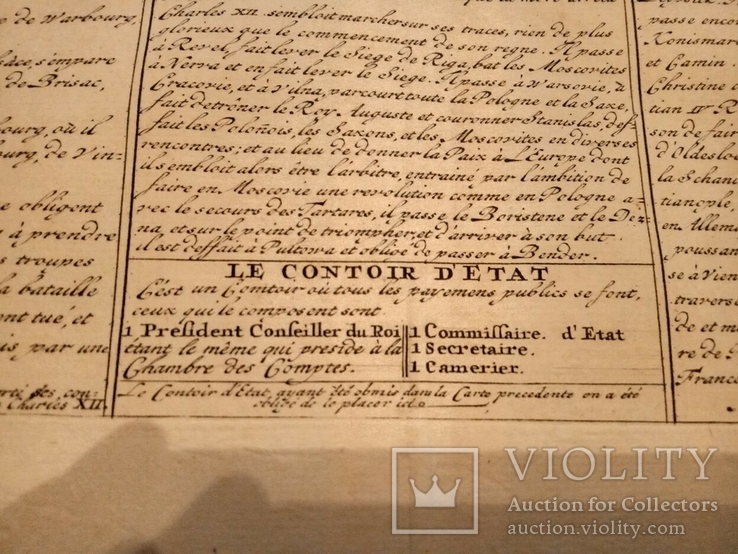 de de Warbourg,
sace, s'empare
de Brisac,
bourg, où il
bourg, de Vin-
e obligent
à prendre
s troupes
la bataille
nt tué, et
is par une
Charles XII.
Charles XII. sembloit marcher sur ses traces, rien de plus
glorieux que le commencement de son regne. Il passe
à Revel, fait lever le Siege de Riga, bat les Moscovites
à Nerva et en fait lever le Siege. Il passe à Warsovie, à
Cracovie, et à Vilna, parcourt toute la Pologne et la Saxe,
fait detrôner le Roy Auguste et couronner Stanislas, def-
fait les Polonois, les Saxons, et les Moscovites en diverses
rencontres; et au lieu de donner la Paix à L'Europe dont
il sembloit alors etre l'arbitre, entrainé par l'ambition de
faire en Moscovie une revolution comme en Pologne a-
vec le secours des Tartares, il passe le Boristene et le Dez-
na, et sur le point de triompher, et d'arriver à son but
il est deffait à Pultowa et obligé de passer à Bender.
LE CONTOIR D'ETAT
C'est un Comtoir où tous les payemens publics se font,
ceux qui le composent sont
1 President Conseiller du Roi
étant le même qui preside à la
Chambre des Comptes.
1 Commissaire. d'Etat
1 Secretaire.
1 Camerier.
Le Contoir d'Etat, ayant été obmis dans la Carte precedente on a été
obligé de le placer ici.
passe enco
Konismar
et Camin.
Christine
tian IV R
son de fair
d'Oldesloe
la Schan
tianople,
en Allem
poussan
se à Vien
traverse
de et m
re de
Franco
VIOLITY
Auction for Collectors
auction.violity.com